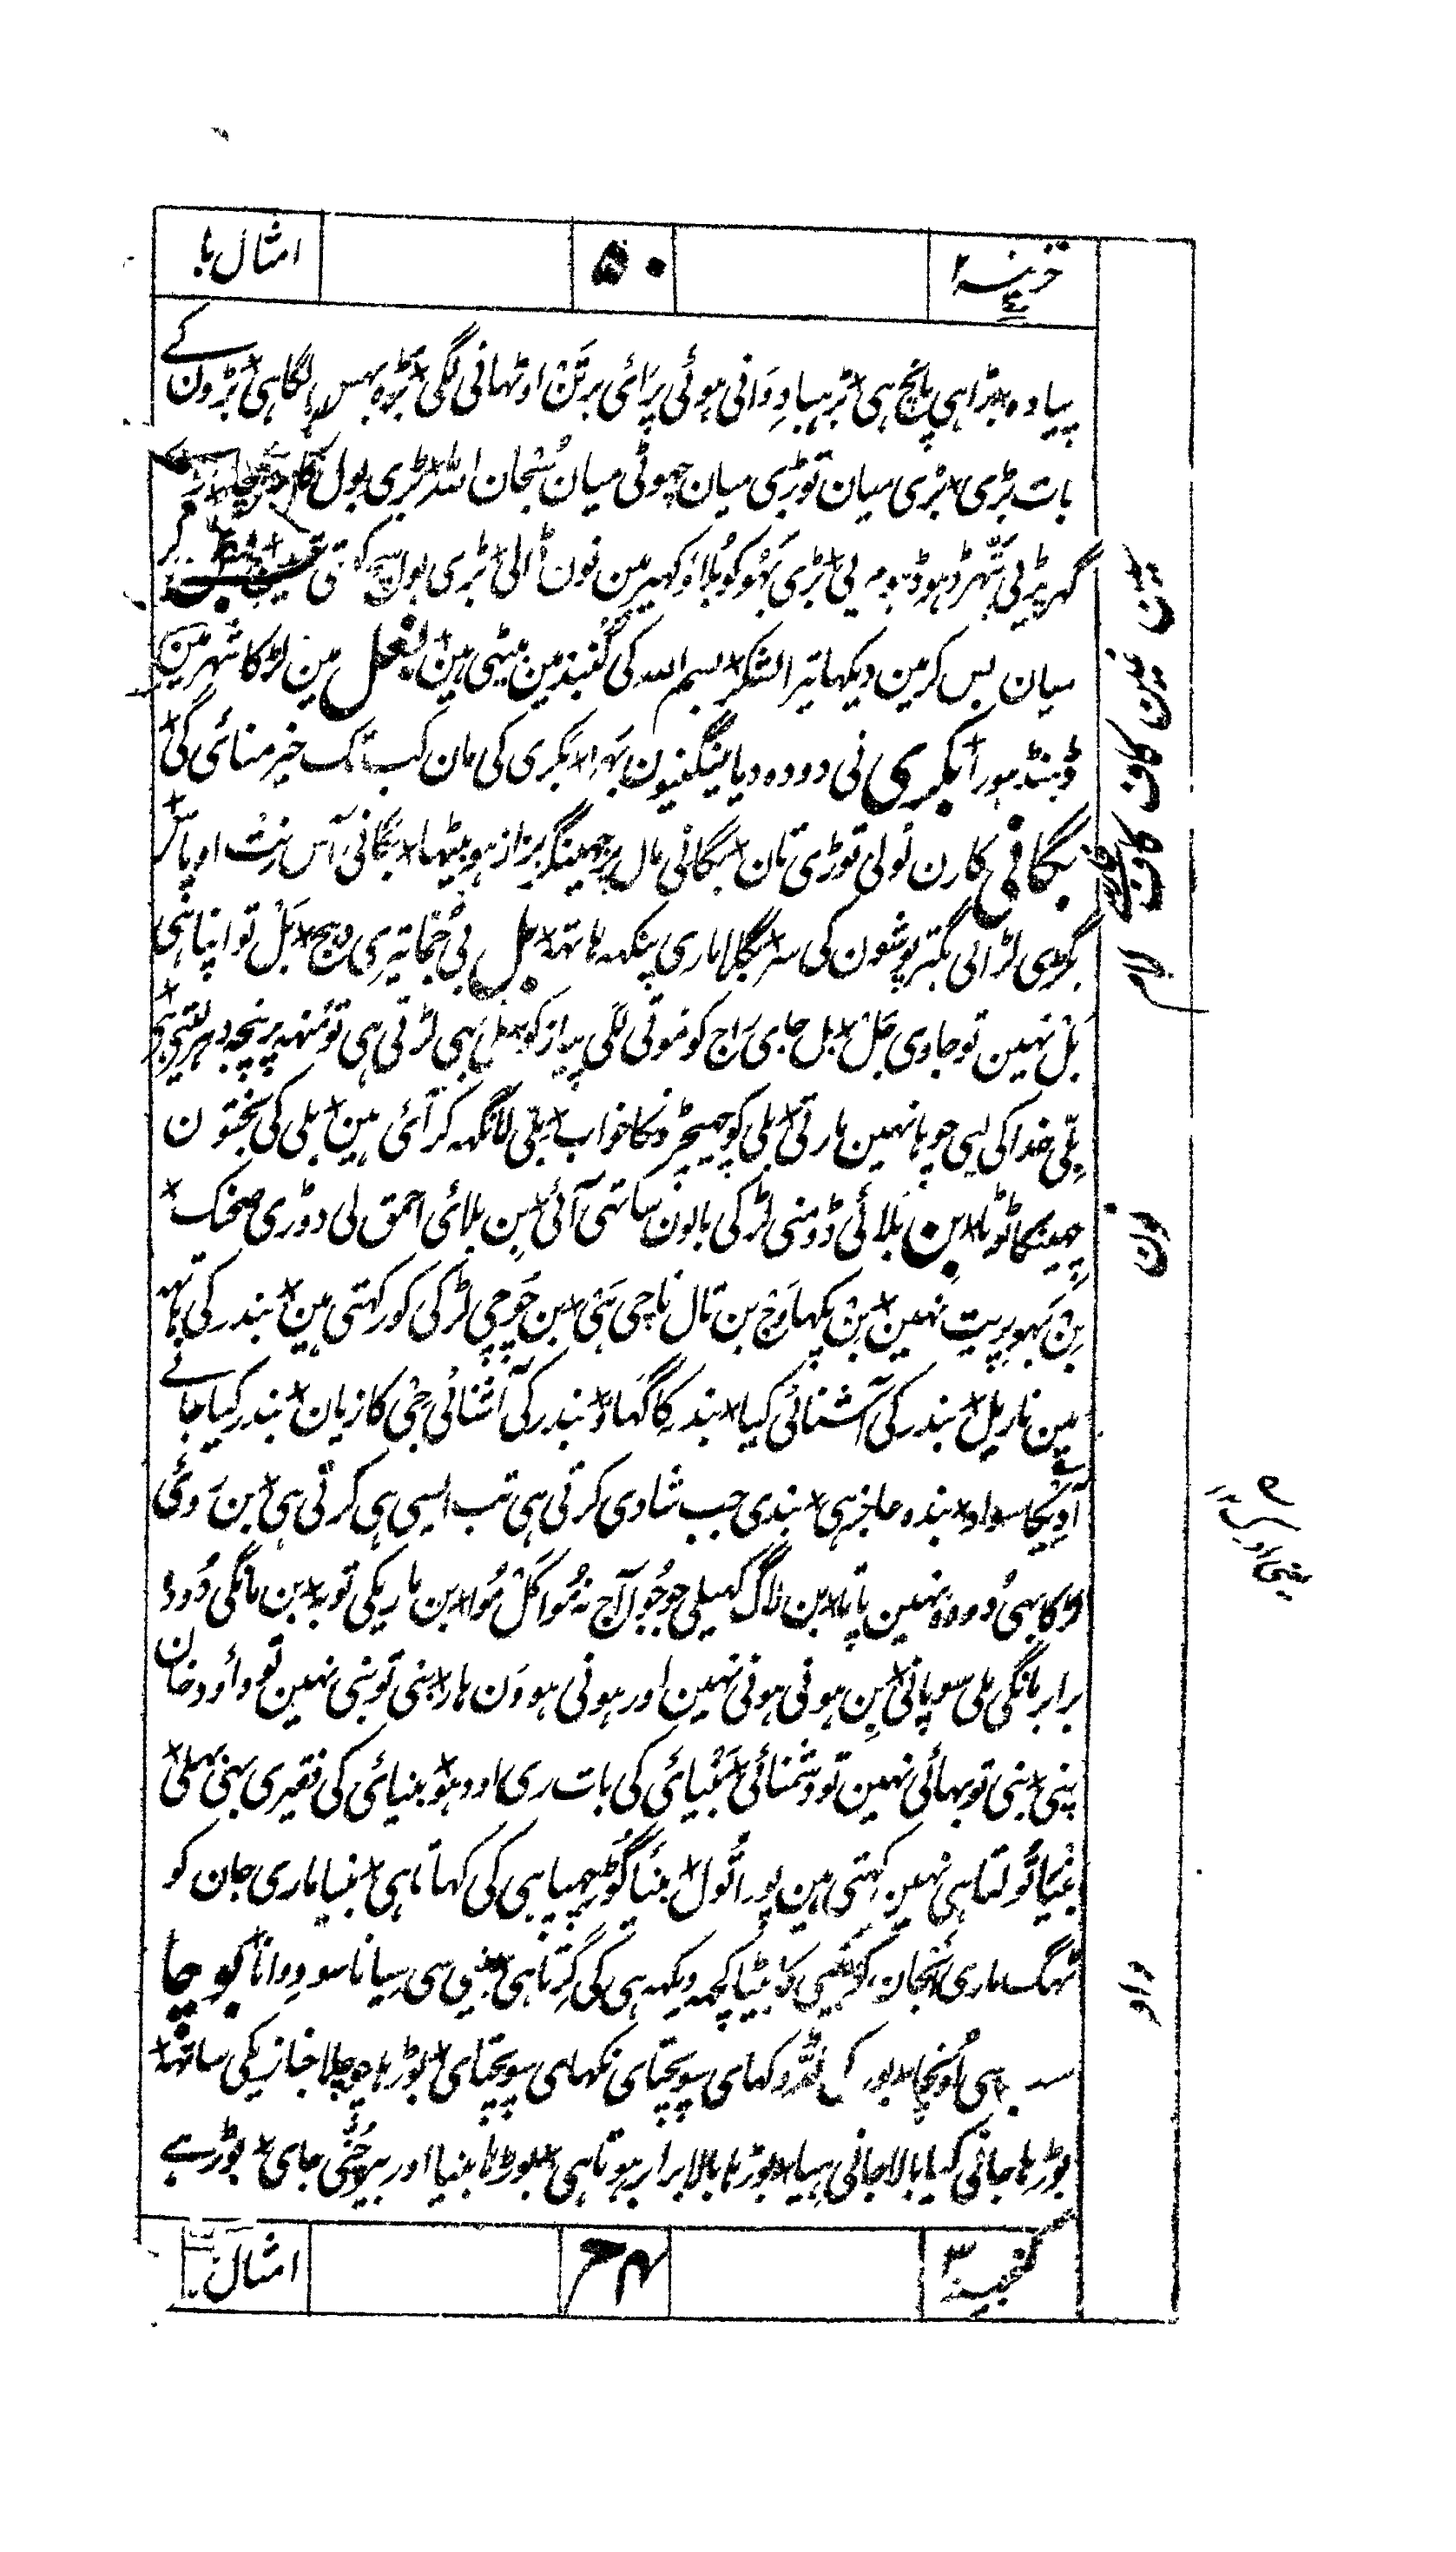 خزینۂ ۲
۵۰
امثال با
پیادہ × بڑا ہی پانچ ہی × بڑہیا دِوَانی ہوئی پرَائی برتَن اوٹہانی لگی × بڑہ بہس لگا ہی × بڑون کے
بات بڑی × بڑی میان تو بڑی میان چہوٹی میان سُبْحان اللہ × بڑی بول کا
گہر پڑی پتّہر ڈہو ڈہو × بڑی بَہْو کو بُلاؤ کہیر مین نون ڈالی × بڑی بول
میان بس کر مین دیکہا تیرا لشکر × بسم اللہ کی گُنبذ مین بیٹہی ہین × بغل مین لڑکا شہر مین
ڈہنڈہورا × بکری نی دودہ دیا مینگنیون بہرا × بکری کی مان کب تک خیر منائی گی ×
بگانی کارن نُولی توڑی تان × بگانی مال پر جہینگر بزاز ہو بیٹہا × بگانی آس نِت اوپاس ×
بگڑی لڑائی بگتر پوشون کی سر × بگلا ماری پنکہہ ہاتہہ × بل بی جُمّا تیری دہج × بَل تو اپنا ہی
بَل نہین تو جاوی جَل × بل جا بی رَاج کو مَوتی لگی پیاز کو × بلی بہی لڑتی ہی تو مُنہہ پر پنجہ دہر لیتی ہی ×
بِلّی خدا کی لیی چوہا نہین مارتی × بلی کو چہیچڑونکا خواب × بلّی لانگہہ کر آئی ہین × بلی کی بختون
چہینکا ٹوٹا × بِن بُلائی ڈومنی لڑکی بالون سات ہی آئی × بِن بلائی احمق لی دوڑی صحنک ×
بِن بَہو پریت نہین × بِن پکہاوَج بن تال ناچی ہَی × بن چُوچی لڑکی کو رکہتی ہین × بندر کی ہاتہہ
مین ناریل × بندر کی آشنائی کیا × بندر کا گہاؤ × بندر کی آشنائی جی کا زیان × بندر کیا جانے
آدیکا سواد × بندہ عاجز ہی × بندی جب شادی کرتی ہی تب ایسی ہی کرتی ہی × بن رَوئی
لڑکا بہی دُودہ نہین پاتا × بن لاگ کہیلی جو جُوا آج نہ مُوا کَل مُوا × بن ماریکی توبہ × بن مانگی دُودہ
برابر مانگی ملی سو پانی × بِن ہونی ہونی نہین اور ہونی ہووَن ہار × بنی تو بنی نہین تو داؤد خان
پنی × بنی تو بہائی نہین تو دُشمنائی × بَنیائی کی بات ری اودہو × بنیائی کی فقیری بہی بہلی ×
بَنیا تُولتا ہی نہین کہتی ہین پورا تُول × بنیا گُڑ چہپا ہی کی کہاتا ہی × بنیا ماری جان کو
ٹہگ ماری انجان کو × بنیی کا بیٹا کچہہ دیکہہ ہی کی گرتا ہی × بنیی سی سیانا سو دِوانا × بوجا
ہی اُونچا × بور کی لڈّو کہای سو پچتای نکہای سو پچتای × بوڑہا چوچلا جنازیکی ساتہہ ×
بوڑہا جانی کیا بالا جانی ہیا × بوڑہا بالا برابر ہوتا ہی × بوڑہا بنیا اور بیر چُنتی جای × بوڑہے
گنجینۂ ۳
امثال
غین کاف کاف
لام
نون
واو